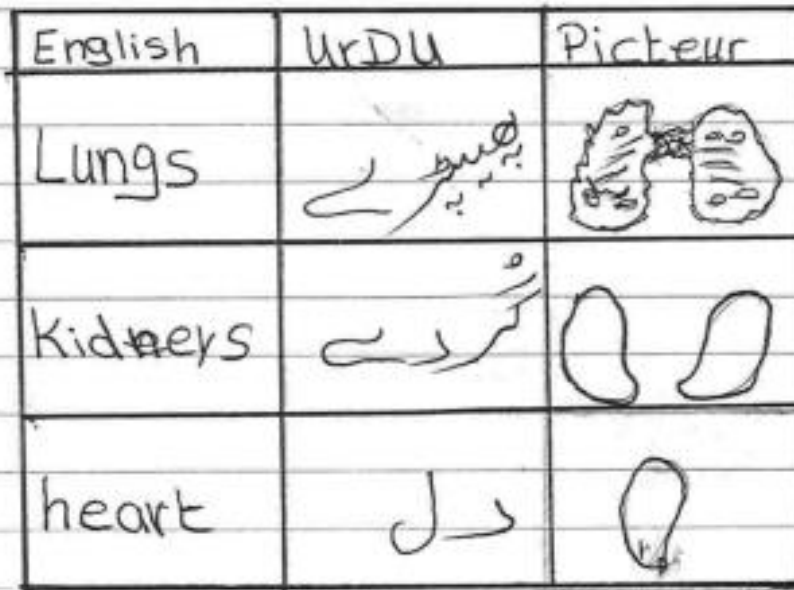 English UrDU Picteur
Lungs پھیپھڑے
Kidneys گُردے
heart دل